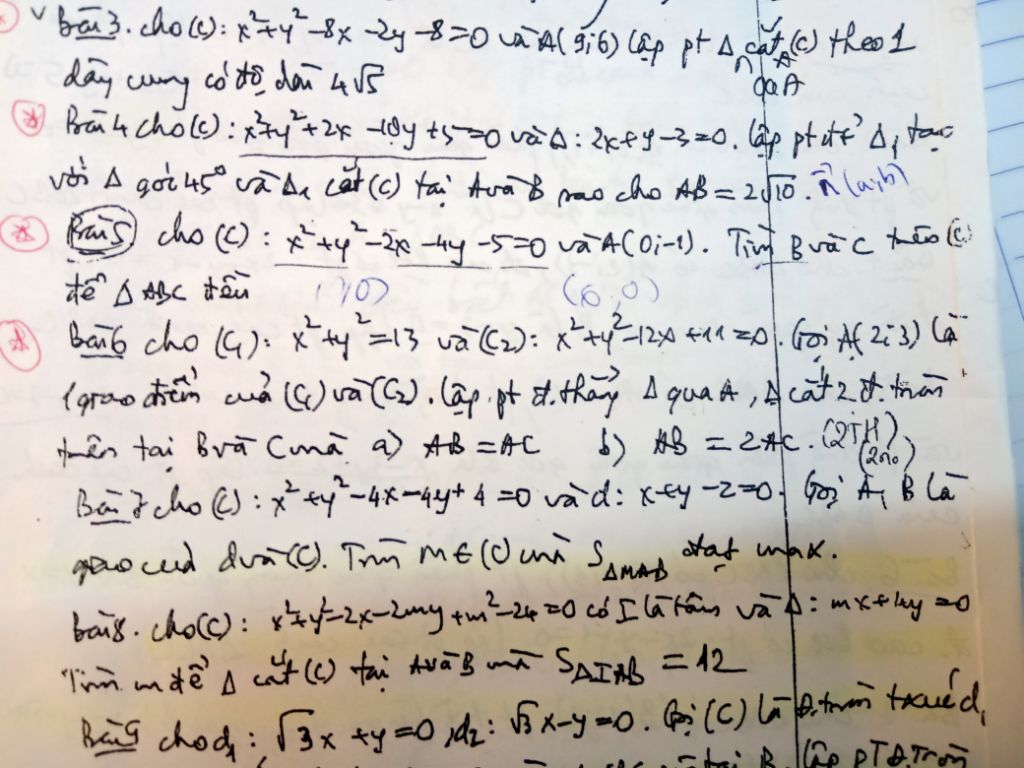 Bài 3. cho (C): x²+y²-8x-2y-8=0 và A(9;6) lập pt Δ cắt (C) theo 1
dây cung có độ dài 4√5 qua A
Bài 4 cho (C): x²+y²+2x-10y+5=0 và Δ: 2x+y-3=0. lập pt đt Δ₁ tạo
với Δ góc 45° và Δ₁ cắt (C) tại A và B sao cho AB=2√10. n(a;b)
Bài 5 cho (C): x²+y²-2x-4y-5=0 và A(0;-1). Tìm B và C thuộc (C)
để Δ ABC đều
Bài 6 cho (C₁): x²+y²=13 và (C₂): x²+y²-12x+11=0. Gọi A(2;3) là
1 giao điểm của (C₁) và (C₂). lập pt đ.thẳng Δ qua A, Δ cắt 2 đ.tròn
trên tại B và C mà a) AB=AC b) AB=2AC. (2TH)
(2no)
Bài 7 cho (C): x²+y²-4x-4y+4=0 và d: x+y-2=0. Gọi A, B là
giao của d và (C). Tìm M∈(C) mà S ΔMAB đạt max.
Bài 8. cho (C): x²+y²-2x-2my+m²-24=0 có I là tâm và Δ: mx+4y=0
Tìm m để Δ cắt (C) tại A và B mà SΔIAB=12
Bài 9 cho d₁: √3x+y=0, d₂: √3x-y=0. Gọi (C) là đ.tròn txúc d₁
tại B. lập PT đ.tròn